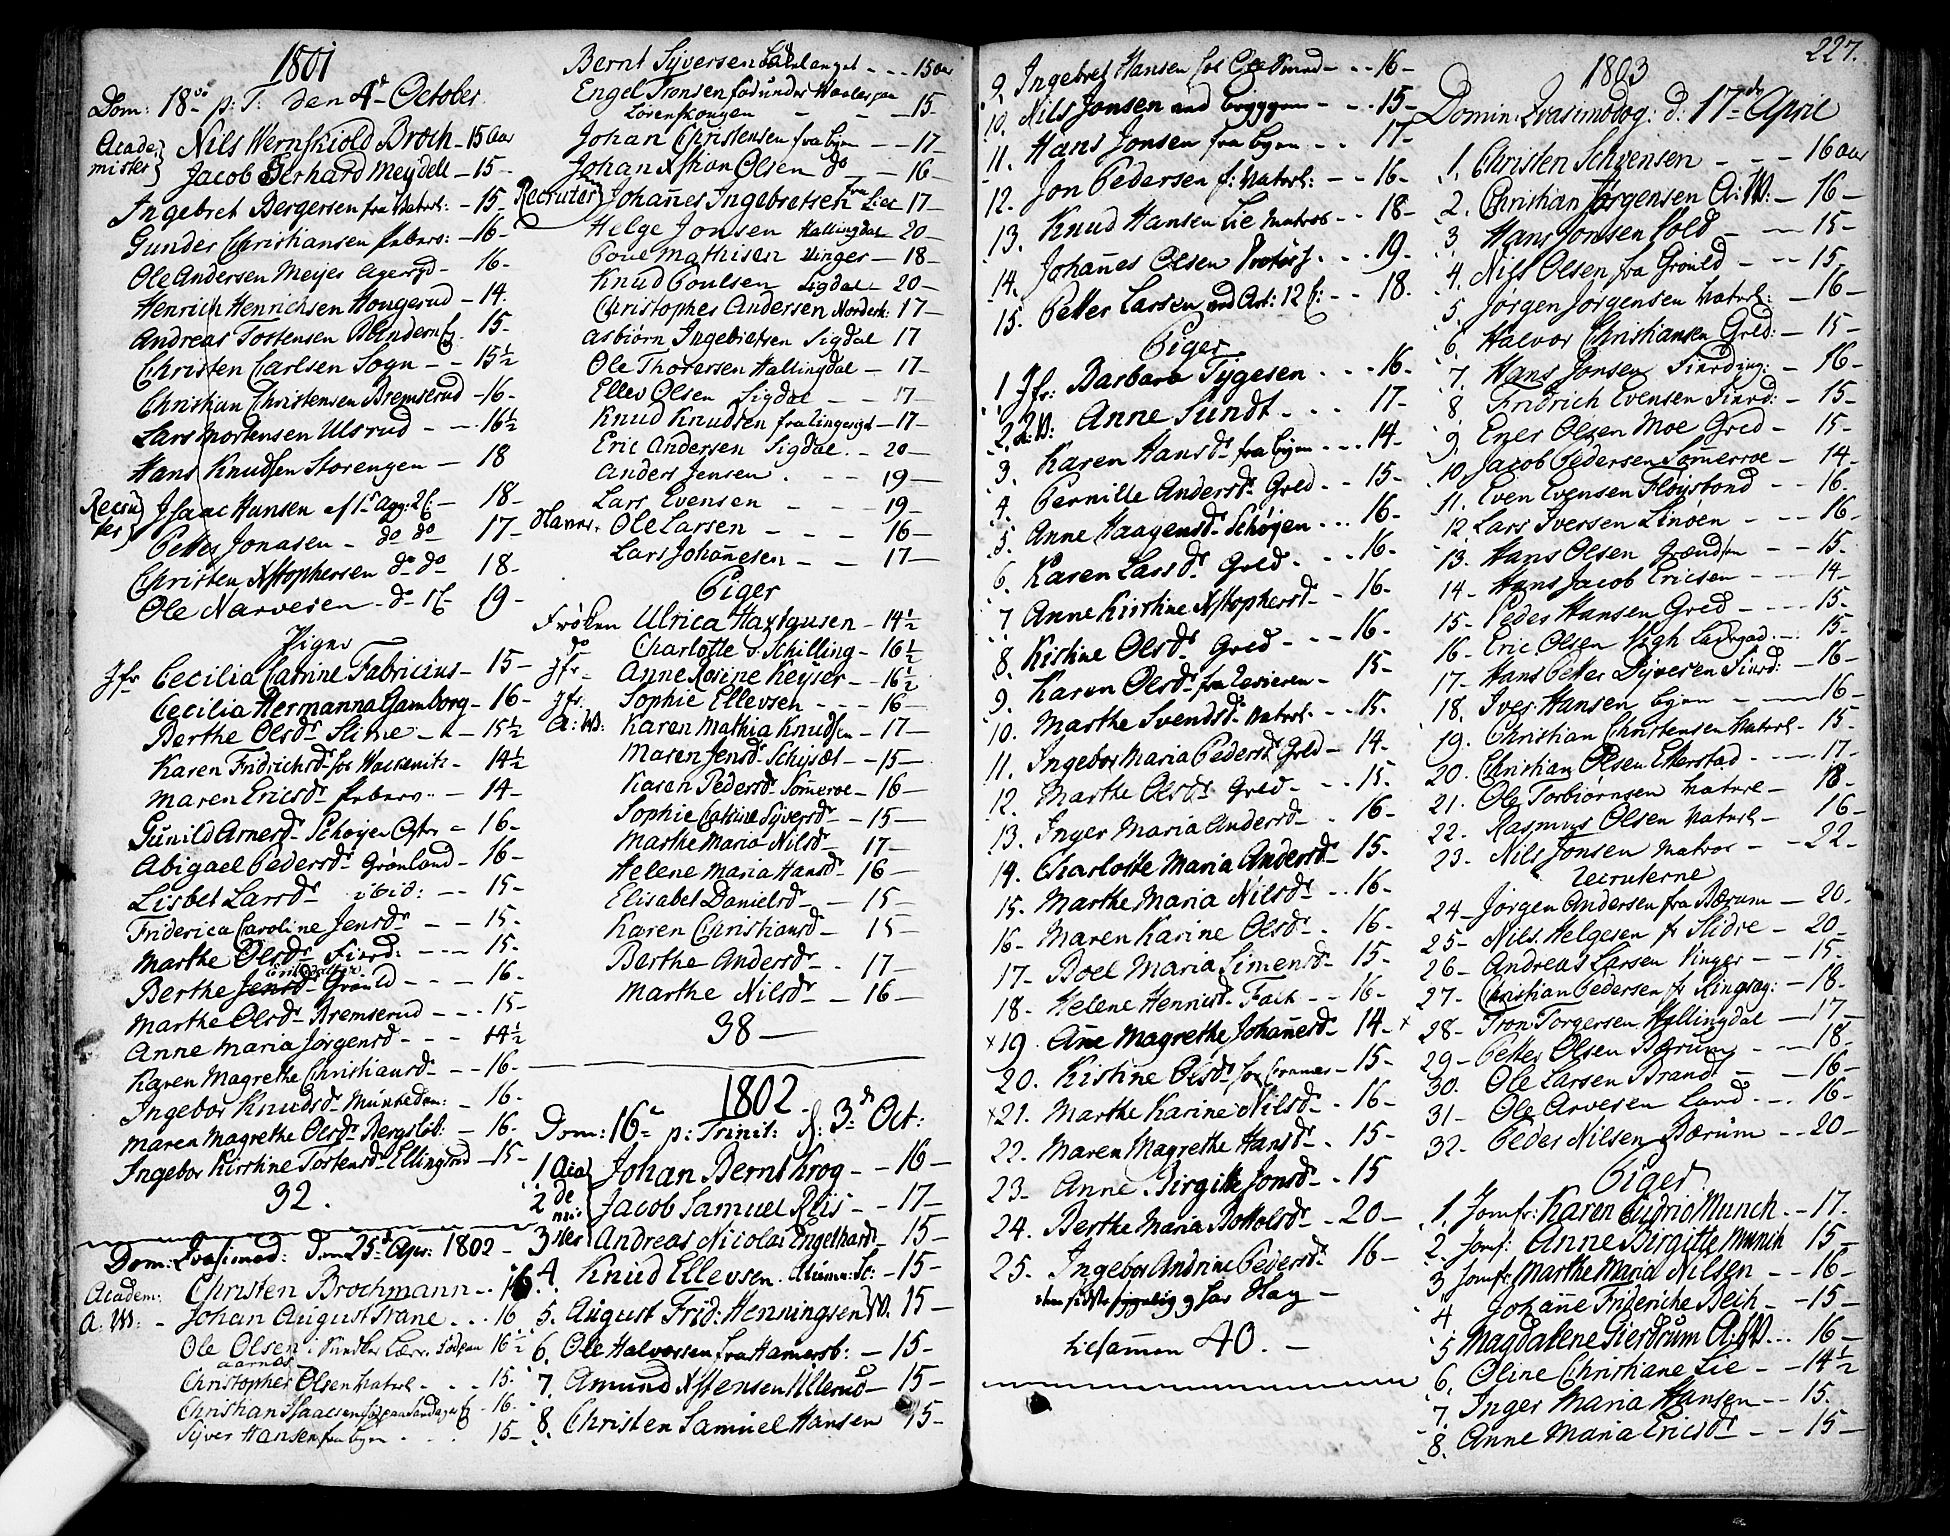 1801
Dom: 18de p: T: den 4de October
Acade
mister} Nils Wernskiold Broch - 15 Aar
Jacob Gerhard Meydell - 15 -
Ingebret Bergersen fra Waterl: - 15 -
Gunder Christiansen - 16 -
Ole Andersen Meyer Agersgd - 16 -
Henrich Henrichsen Hougerud - 14 -
Andreas Tostensen Blindern - 15 -
Christen Carlsen Sogn - 15½
Christian Christensen Bremserud - 16 -
Lars Mortensen Ulsrud - - 16½
Hans Knudsen Storengen - 18
Recru
ter} Isaac Hansen af 1ste Agg: 2 C - 18 -
Petter Jonasen - do do 17 -
Christen Xstophersen do do 18 -
Ole Narvesen - do 1 C 19 -
Piger
Jfr Cecilia Catrine Fabricius - 15 -
Cecilia Hermanna Gamborg - 16 -
Berthe Olsdr Slime - - 15½
Karen Fridrichsdr hos Wackenitz - 14½
Maren Ericsdr - 14 -
Gunild Arnesdr Schøyen - 16 -
Abigael Pedersdr Grønland - 16 -
Lisbet Larsdr ibid: - - 15 -
Friderica Caroline Jensdr - - 15 -
Marthe Olsdr Fierd: - - - 15 -
Berthe Jensdr Grønld - - - 16 -
Marthe Olsdr Bremserud - - - 15 -
Anne Maria Jørgensdr - - - 14½
Karen Magrethe Christiansdr - - 16 -
Ingebor Knudsdr Munkedam: - 16 -
Maren Magrethe Olsdr Bergsløb: - 16 -
Ingebor Kirstine Tostensdr Ellingsrud - 15 -
32.
Dom: Qvasimod: den 25de Apr: 1802 -
Academ: Christen Brochmann - - 16
A: W: - Johan August Trane - - 16
Ole Olsen 16½
Aarnæs
Christopher Olsen Waterl - - - 15 -
Christian Isaacsen - 16 -
Syver Hansen fra Byen - - - 15 -
Bernt Syversen - - - 15 Aar
Engel Tronsen fød under
Lørenskougen - - - 15 -
Johan Christensen fra Byen - - 17 -
Johan Xstian Olsen do - 16 -
Recruter} Johannes Ingebretsen fra Lier 17 -
Helge Jonsen Hallingdal - 20 -
Poul Mathisen Vinger - 18 -
Knud Poulsen Sigdal - 20 -
Christopher Andersen Norderh: 17 -
Asbiørn Ingebretsen Sigdal 17
Ole Thorersen Hallingdal - 17 -
Ellev Olsen Sigdal - - 17 -
Knud Knudsen - 17 -
Eric Andersen Sigdal - - 20 -
Anders Jensen - - - 19 -
Lars Evensen - - 19 -
Ole Larsen - - - 16 -
Lars Johannesen - - 17 -
Piger
Frøken Ulrica Haxthausen - 14½
do Charlotte v Schilling - 16½
Jfr - Anne Rosine Keyser - - 16½
Jfr. Sophie Ellevsen - - - 16 -
A: W: Karen Mathia Knudsen - 17 -
Maren Jensdr - 15 -
Karen Pedersdr Sommeroe - 16 -
Sophie Catrine Syversdr - 15 -
Marthe Maria Nilsdr - 17 -
Helene Maria Hansdr - 16 -
Elisabet Danielsdr - 15 -
Karen Christiansdr - 15 -
Berthe Andersdr - - 17 -
Marthe Nilsdr - 16 -
38 -
1802.
Dom: 16de p: Trinit: d: 3de Oct:
1 Aca Johan Bernt Krog - - 16 -
2 de Jacob Samuel Riis - - 17 -
mi
3 ster Andreas Nicolai Engelhardt - 15 -
4. Knud Ellevsen - 15 -
5. August Frid: Henningsen W. 15 -
6. Ole Halvorsen fra Hamersb: - 15 -
7. Amund Xstensen Ullerud - 15 -
8. Christen Samuel Hansen 15 -
227.
9. Ingebret Hansen hos Ole Smed - - 16 -
10. Nils Jonsen - - - 15 -
11. Hans Jonsen fra Byen - - 17 -
12. Jon Pedersen f: Waterl: - - 16 -
13. Knud Hansen Lie Matros - - 18 -
14. Johannes Olsen - - - 19 -
15. Petter Larsen ved Art: 12 C: - - 18.
Piger
1 Jfr: Barbara Tygesen - - - 16 -
2 A: W: Anne Sundt - - - 17 -
3. Karen Hansdr fra Byen - - - 14 -
4. Pernille Andersdr Grld - - 15 -
5. Anne Haagensdr Schøyen - - - 16 -
6. Karen Larsdr Grld - - - 16 -
7 Anne Kirstine Xstophersdr - 16 -
8. Kistine Olsdr Grld - - - 16 -
9. Karen Olsdr - 15 -
10. Marthe Svendsdr Waterl - - 15 -
11. Ingebor Maria Pedersdr Grld - 14 -
12. Marthe Olsdr Grld - - - 15 -
13. Inger Maria Andersdr - - 16 -
14. Charlotte Maria Andersdr - 15 -
15. Marthe Maria Nilsdr - - 16 -
16 - Maren Karine Olsdr - - 16 -
17 - Boel Maria Simensdr - 15 -
18 - Helene Henricsdr Falk - - 16 -
x 19. Anne Magrethe Johannesdr - 14 - x
20. Kistine Olsdr - 15 -
x 21. Marthe Karine Nilsdr - 16 -
22. Maren Magrethe Hansdr - - 15 -
23 - Anne Birgitte Jonsdr - 15
24. Berthe Maria Bottolsdr - - 20 -
25. Ingebor Andrine Pedersdr 16 -
tilsammen 40. -
1803
Domin: Qvasimodog: d: 17de April
1. Christen Schvensen - - - 16 Aar
2. Christian Jørgensen A: W: - 16 -
3 Hans Jonsen - - 15 -
4. Nils Olsen fra Grønld - - - 15 -
5. Jørgen Jørgensen Waterl: - 16 -
6. Halvor Christiansen Grld: - 15 -
7. Hans Jonsen Fierding: - 16 -
8 Fridrich Evensen Fierd: - 15 -
9. Ener Olsen Moe Grld - 15 -
10. Jacob Pedersen Sommerroe - 14 -
11. Even Evensen Fløysbond - 16 -
12. Lars Iversen Linoen - - - 16 -
13. Hans Olsen Grændsen - - 15 -
14 - Hans Jacob Ericsen - - - 14 -
15 - Peder Hansen Grld - - - - 15 -
16 - Eric Olsen - - 15 -
17 - Hans Petter Syversen Fierd: - 16 -
18. Iver Hansen Byen - - 16 -
19. Christian Christensen Waterl - 15 -
20. Christian Olsen Ekerstad - - - 17 -
21. Ole Torbiørnsen Waterl - 18 -
22. Rasmus Olsen Waterl - 16 -
23. Nils Jonsen Matros - - 22 -
Recruterne
24 - Jørgen Andersen fra Bærum - 20 -
25 - Nils Helgesen fr Slidre - 20 -
26 - Andreas Larsen Vinger - - 15 -
27 - Christian Pedersen fr Ringsag: - 18 -
28 - Tron Torgersen Hallingdal - 17 -
29 - Petter Olsen Bærum - - 18 -
30. Ole Larsen Brand: - - 16 -
31 - Ole Arvesen Land - - - 16 -
32. Peder Nilsen Bærum - - 20 -
Piger.
1. Jomfr: Karen Munch - - 17 -
2. Jomf: Anne Birgitte Munch 15 -
3 Jomfr: Marthe Maria Nilsen - - 16 -
4 Johanne Frideriche Beich - - 15 -
5 Magdalene Sierdrum A: W. - - 16 -
6. Oline Christiane Lie - - 14½
7. Inger Maria Hansen - - 15 -
8. Anne Maria Ericsdr - - 15 -